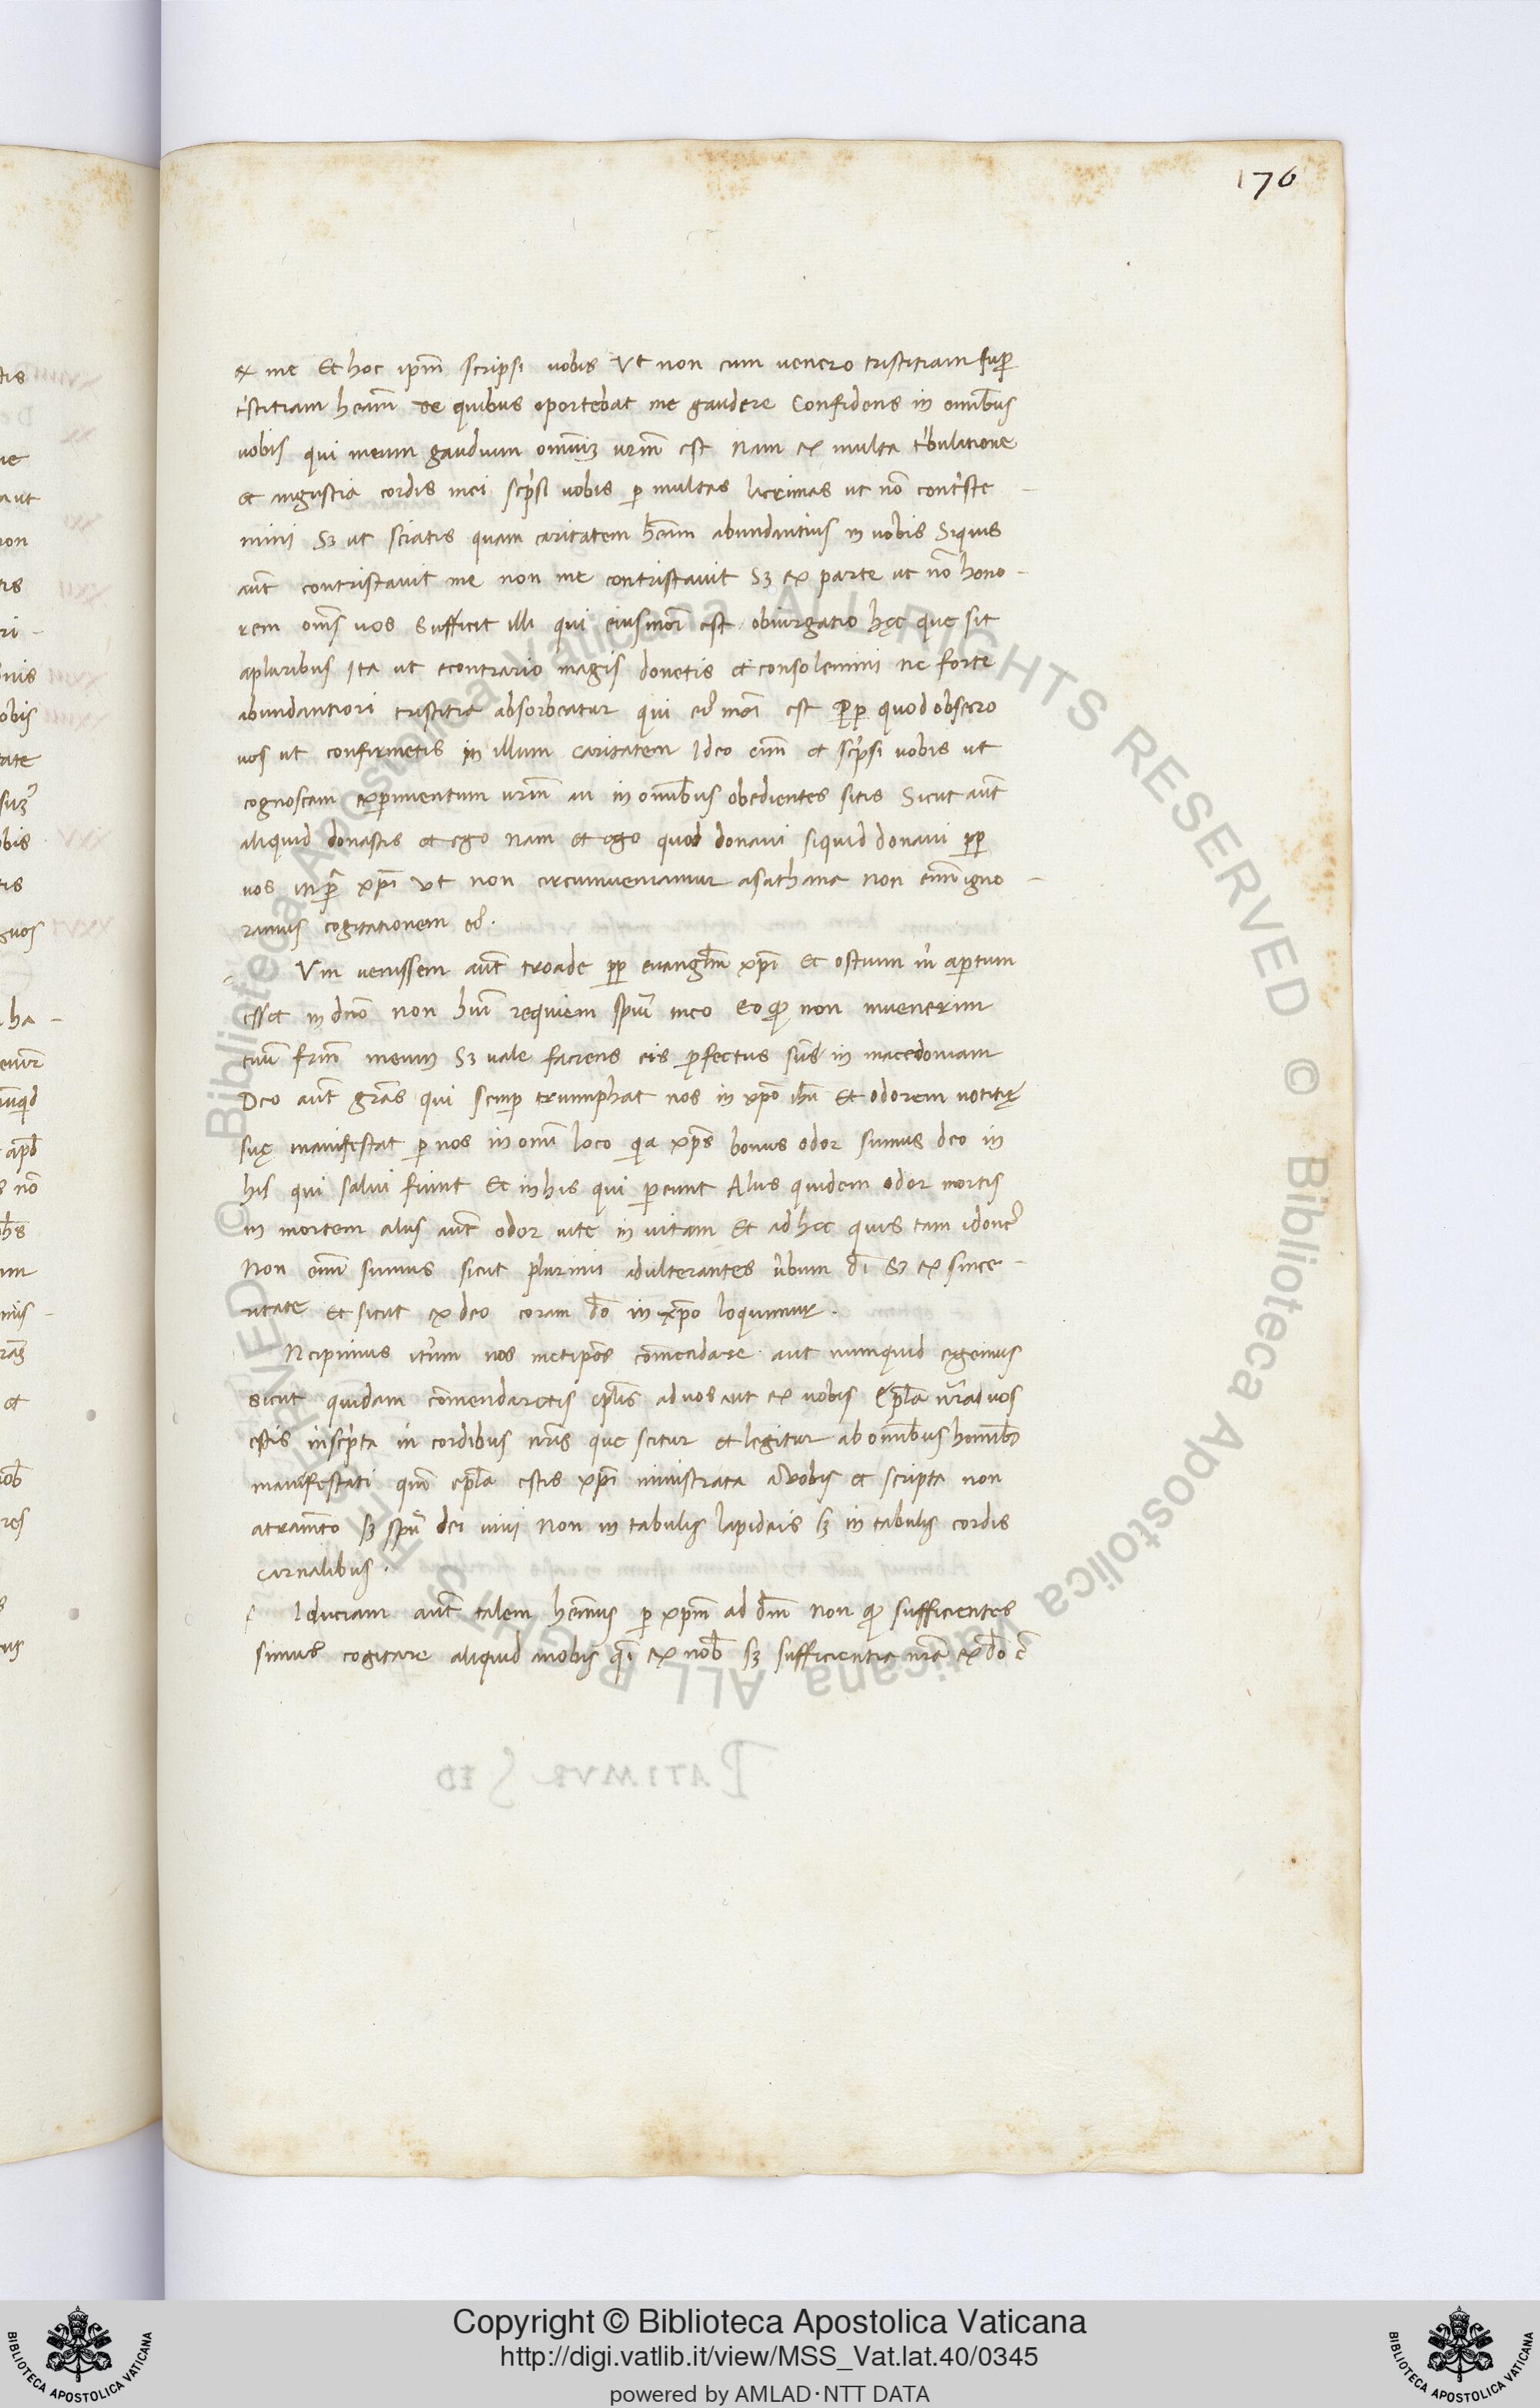 176
ex me Et hoc ipm̄ scripsi uobis Vt non cum uenero tristitiam sup̄
tͥstitiam heam̄ de quibus oportebat me gaudere Confidens in omīb;us
uobis qui meum gaudium omniuꝫ urm̄ est Nam ex multa tͥbulatione
et angustia cordis mei scͥpsi uobis ꝑ multas lacrimas ut nō contͥste
mini Sꝫ ut sciatis quam caritatem heam̄ abundantius in uobis Siquis
aut̄ contristauit me non me contristauit Sꝫ ex parte ut nō hono-
rem om̄s uos Sufficit illi qui eiusmōi est obiurgatio hęc que fit
apluribus Ita ut econtrario magis donetis et consolemini ne forte
abundantiori tristitia absorbeatur qui eꝰmōi est Ꝓp̄ quod obsecro
uos ut confirmetis in illum caritatem Ideo eim̄ et scͥpsi uobis ut
cognoscam exꝑimentum urm̄ an in omībus obedientes sitis Sicut aut̄
aliquid donastis et ego Nam et ego quod donaui siquid donaui ꝓp̄
uos in ꝑ̄a xp̄i Vt non circumueniamur asathana Non enim̄ igno-
ramus cogitationem eꝰ.
Vm uenissem aut̄ troade ꝓp̄ euanglm̄ xp̄i Et ostium m̄ aꝑtum
esset in dn̄o non hui̅ requiem spūi meo Eo ꝙ non inuenerim
titū frm̄ meum Sꝫ uale faciens eis ꝓfectus sū in macedoniam
Deo aut̄ grās qui semꝑ triumphat nos in xp̄o ihū Et odorem notitię
suę manifestat ꝑ nos in omī loco quia xp̄s bonus odor sumus deo in
his qui salui fiunt Et in his qui ꝑeunt Alijs quidem odor mortis
in mortem alijs aut̄ odor uite in uitam Et ad hec quis tam idoneꝰ
Non enim̄ sumus sicut plurimi adulterantes ūbum dī Sꝫ ex since-
ritate Et sicut ex deo coram dō in xp̄o loquimur.
Ncipimus itͤum nos metip̄os comendare aut numquid egemus
sicut quidam comendaticijs eplīs ad uos aut ex uobis Epl̄a nrā uos
estis inscͥpta in cordibus nrīs que scitur et legitur ab omībus homīb;
manifestati qm̄ epl̄a estis xp̄i ministrata anobis et scripta non
atramēto sꝫ spū dei uiui Non in tabulis lapideis sꝫ in tabulis cordis
carnalibus.
f Iduciam aut̄ talem hem̄us ꝑ xpm̄ ad dm̄ Non ꝙ sufficientes
simus cogitare aliquid anobis qͣi ex nob̄ sꝫ sufficientia nrā ex dō ē
Copyright © Biblioteca Apostolica Vaticana
http://digi.vatlib.it/view/MSS_Vat.lat.40/0345
powered by AMLAD·NTT DATA